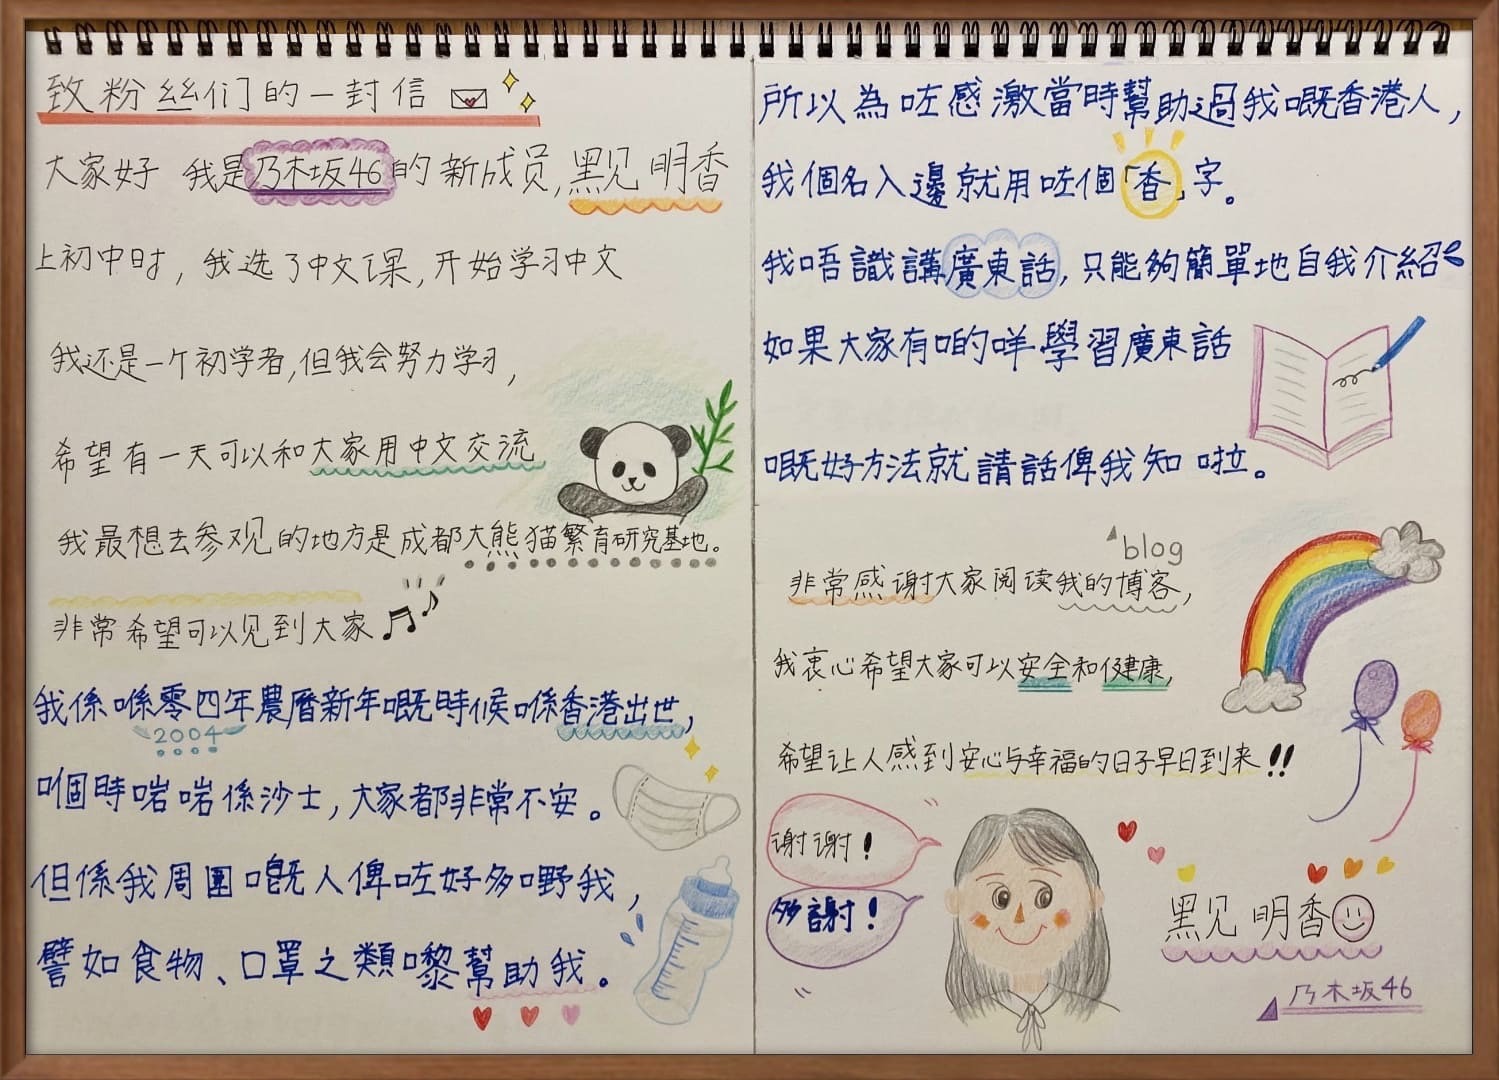 致粉丝们的一封信
大家好 我是乃木坂46的新成员,黑见 明香
上初中时,我选了中文课,开始学习中文
我还是一个初学者,但我会努力学习,
希望有一天可以和大家用中文交流
我最想去参观的地方是成都大熊猫繁育研究基地。
非常希望可以见到大家
我係喺零四年農曆新年嘅時候喺香港出世,
2004
嗰個時啱啱係沙士,大家都非常不安。
但係我周圍嘅人俾咗好多嘢我,
譬如食物、口罩之類嚟幫助我。
所以為咗感激當時幫助過我嘅香港人,
我個名入邊就用咗個「香」字。
我唔識講廣東話,只能夠簡單地自我介紹
如果大家有啲咩學習廣東話
嘅好方法就請話俾我知啦。
blog
非常感谢大家阅读我的博客,
我衷心希望大家可以安全和健康,
希望让人感到安心与幸福的日子早日到来!!
谢谢!
多謝!
黑见 明香
乃木坂46